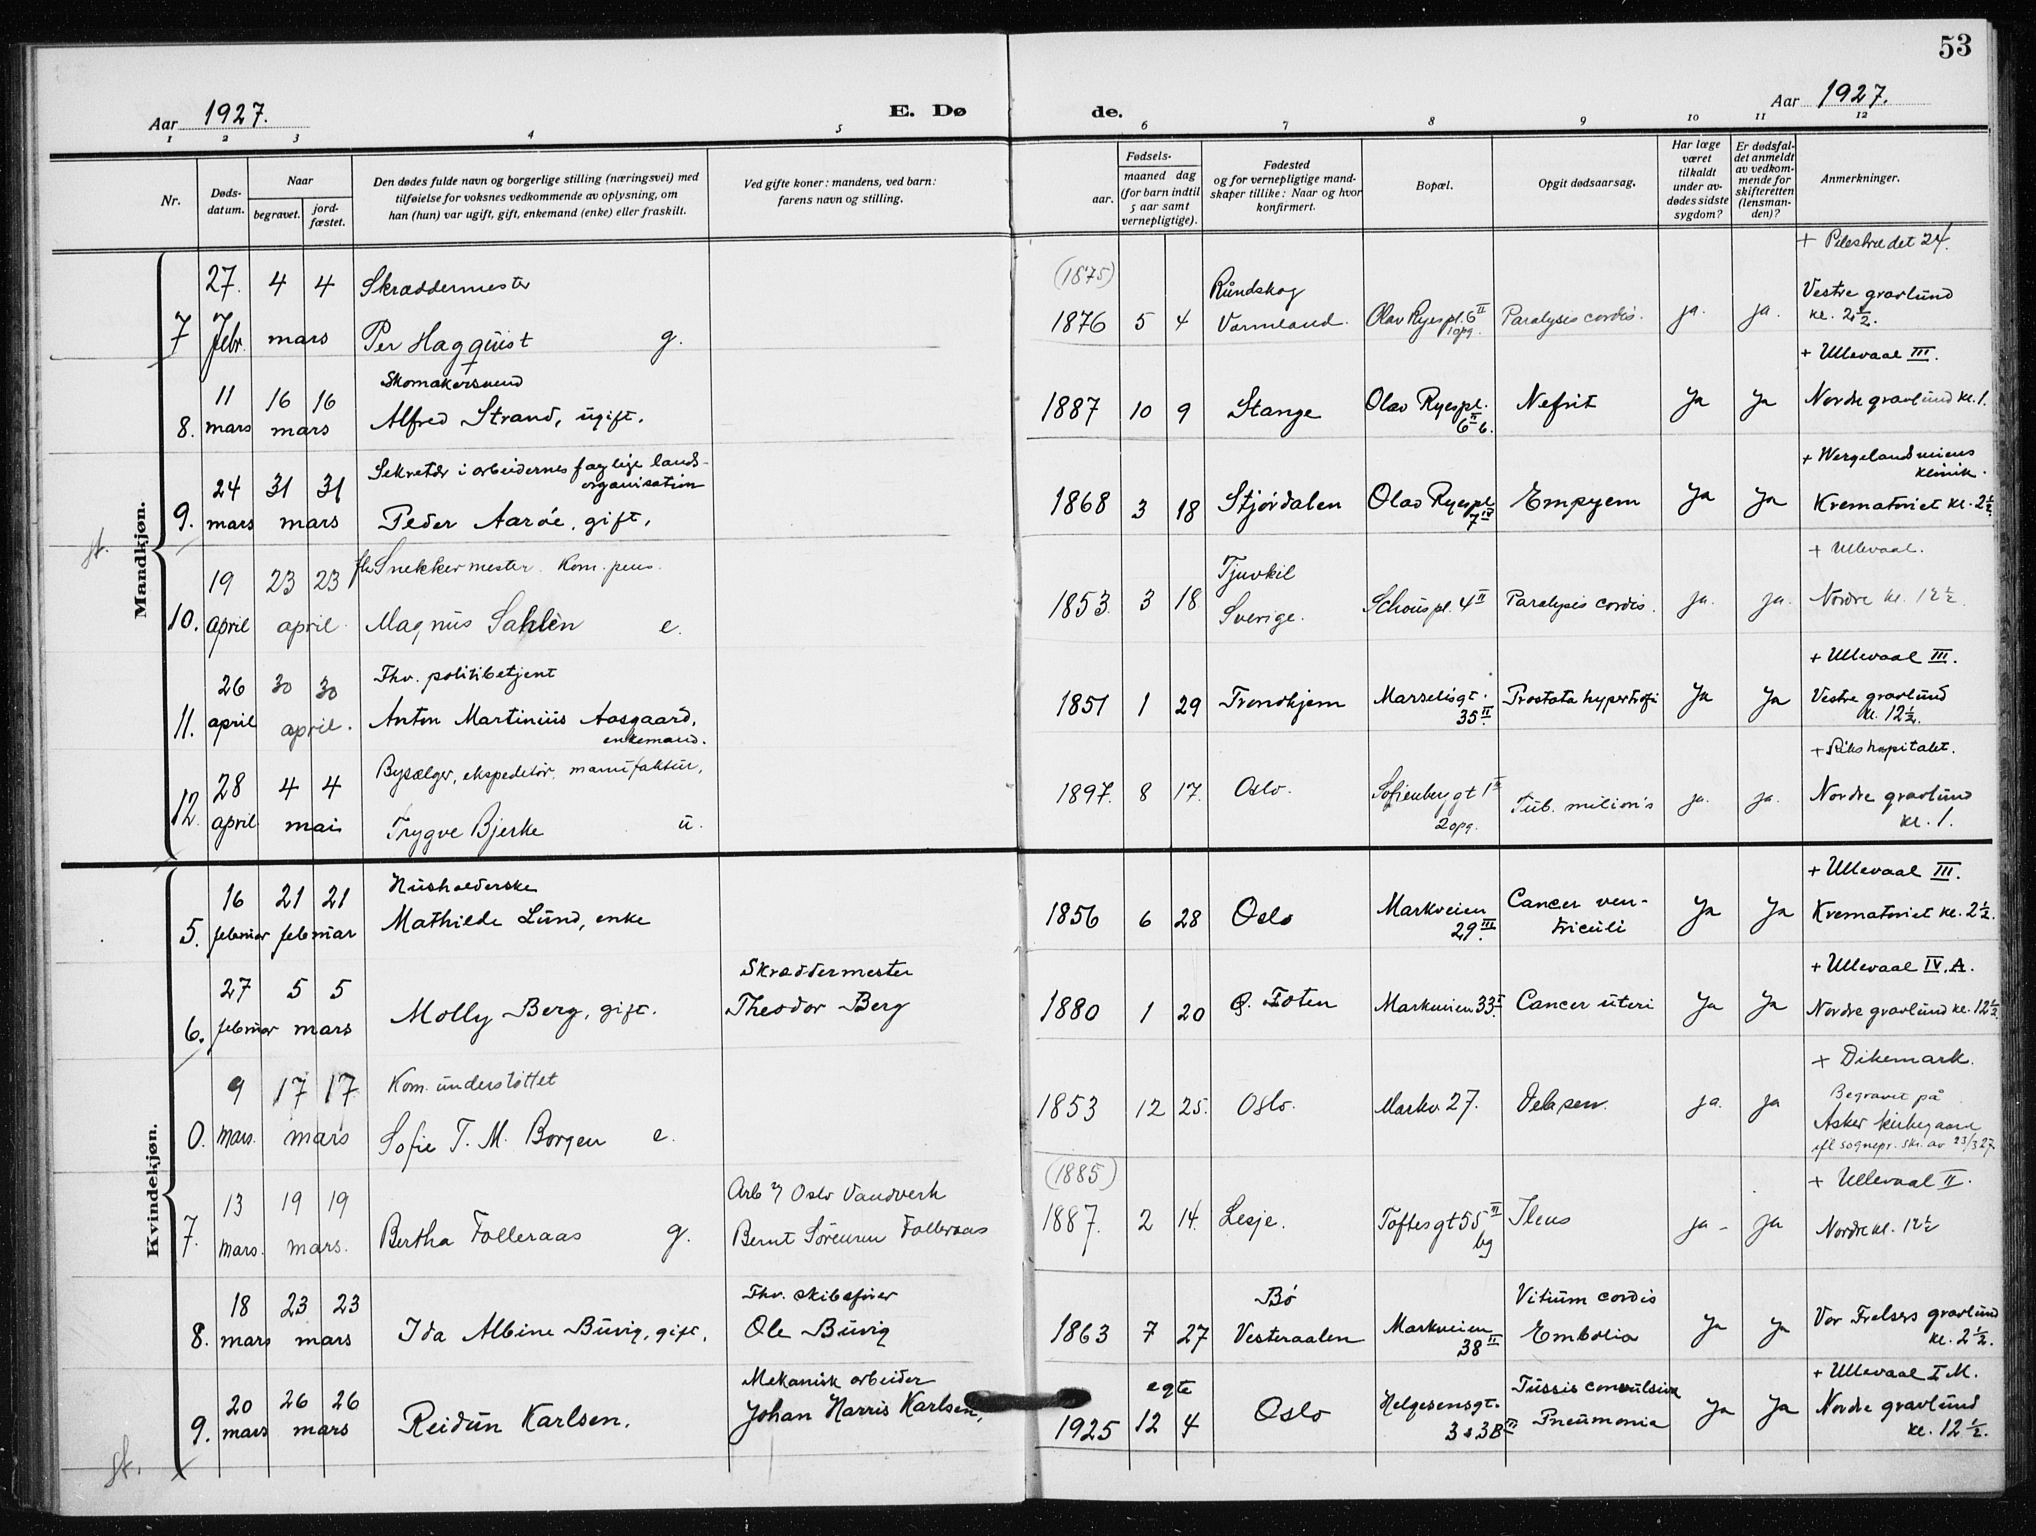 53
Aar 1927.
E. Dø
de.
Aar 1927.
1 2 3 4 5 6 7 8 9 10 11 12
Nr.
Døds-
datum.
Naar
begravet.
jord-
fæstet.
Den dødes fulde navn og borgerlige stilling (næringsvei) med
tilføielse for voksnes vedkommende av oplysning, om
han (hun) var ugift, gift, enkemand (enke) eller fraskilt.
Ved gifte koner: mandens, ved barn:
farens navn og stilling.
aar.
Fødsels-
maaned dag
(for barn indtil
5 aar samt
vernepligtige).
Fødested
og for vernepligtige mand-
skaper tillike: Naar og hvor
konfirmert.
Bopæl.
Opgit dødsaarsag.
Har læge
været
tilkaldt
under av-
dødes sidste
sygdom?
Er dødsfal-
det anmeldt
av vedkom-
mende for
skifteretten
(lensman-
den)?
Anmerkninger.
Mandkjøn.
+ Pilestrædet 24.
27. 4 4 Skræddermester (1875) Rúndskog Vestre gravlund
7 Febr. mars Per Hagqúist g. 1876 5 4 Varmland. Olav Ryespl. 6 II Paralysis cordis. ja. ja. kl. 2½.
1opg.
+ Ullevaal III.
Skomakersvend
11 16 16
8. mars mars Alfred Strand, úgift. 1887 10 9 Stange Olav Ryespl. Nefrit Ja Ja Nordre gravlúnd kl. 1.
6 II b.
+ Wergelandsveiens
klinik.
Sekretær i arbeidernes faglige lands-
organisation
24 31 31
9. mars mars Peder Aarøe, gift. 1868 3 18 Stjørdalen Olav Ryespl. Empyem Ja Ja Krematoriet kl. 2½.
7 IV
st.
+ Ullevaal.
fh. Snekkermester. Kom. pens. Tjuvkil
19 23 23
10. april april. Magnús Sahlèn e. 1853. 3 18 Sverige. Schoúspl. 4 II Paralysis cordis. ja. ja. Nordre kl. 12½
+ Ullevaal III.
Fhv. politibetjent
26 30 30
11. april april. Anton Martiniús Aasgaard, 1851 1 29 Trondhjem Marselisgt. Prostata hypertrofi Ja Ja Vestre gravlúnd
enkemand. 35 II. kl. 12½.
+ Rikshospitalet.
Bysælger, ekspeditør. manúfaktúr,
28 4 4
12. april mai Trygve Bjerke ú. 1897. 8 17. Oslo. Sofienberggt 1 II Túb. miliaris ja. ja. Nordre gravlúnd
2opg. kl. 1.
Kvindekjøn.
+ Ullevaal III.
Húsholderske
16 21 21
5. febrúar febrúar Mathilde Lúnd, enke 1856 6 28 Oslo Markveien Cancer ven- Ja Ja Krematoriet kl. 2½.
29 III. tricúli
+ Ullevaal IV. A.
Skræddermester
27 5 5
6. febrúar mars Molly Berg, gift. Theodor Berg 1880 1 20 Ø. Toten Markveien 33 I. Cancer úteri Ja Ja Nordre gravlúnd kl. 12½.
+ Dikemark.
Kom. únderstøttet
9 17 17 Begravet på
0. mars. mars Sofie T. M. Borgen e. 1853 12 25. Oslo. Markv. 27. ja. ja Asker kirkegaard
ifl sognepr. skr. av 23/3 27.
(1885)
+ Ullevaal II.
Arb v Oslo Vandverk
13 19 19
7. mars. mars. Bertha Folleraas g. Bernt Sørensen Folleraas 1887. 2 14. Lesje. Toftesgt 55 II Ileus ja - ja Nordre kl. 12½
bg
Fhv. skibsfører Bø Vitium cordis
18 23 23
8. mars mars Ida Albine Búvig, gift. Ole Búvig 1863 7 27 Vesteraalen Markveien Embolia Ja Ja Vor Frelsers gravlúnd
38 II kl. 2½.
+ Ullevaal I M.
Mekanisk arbeider egte Tússis convúlsiva
20 26 26
9. mars mars Reidún Karlsen. Johan Harris Karlsen. 1925 12 4 Oslo Helgesensgt. Pneúmonia Ja Ja Nordre gravlúnd
kl. 12½.
st.